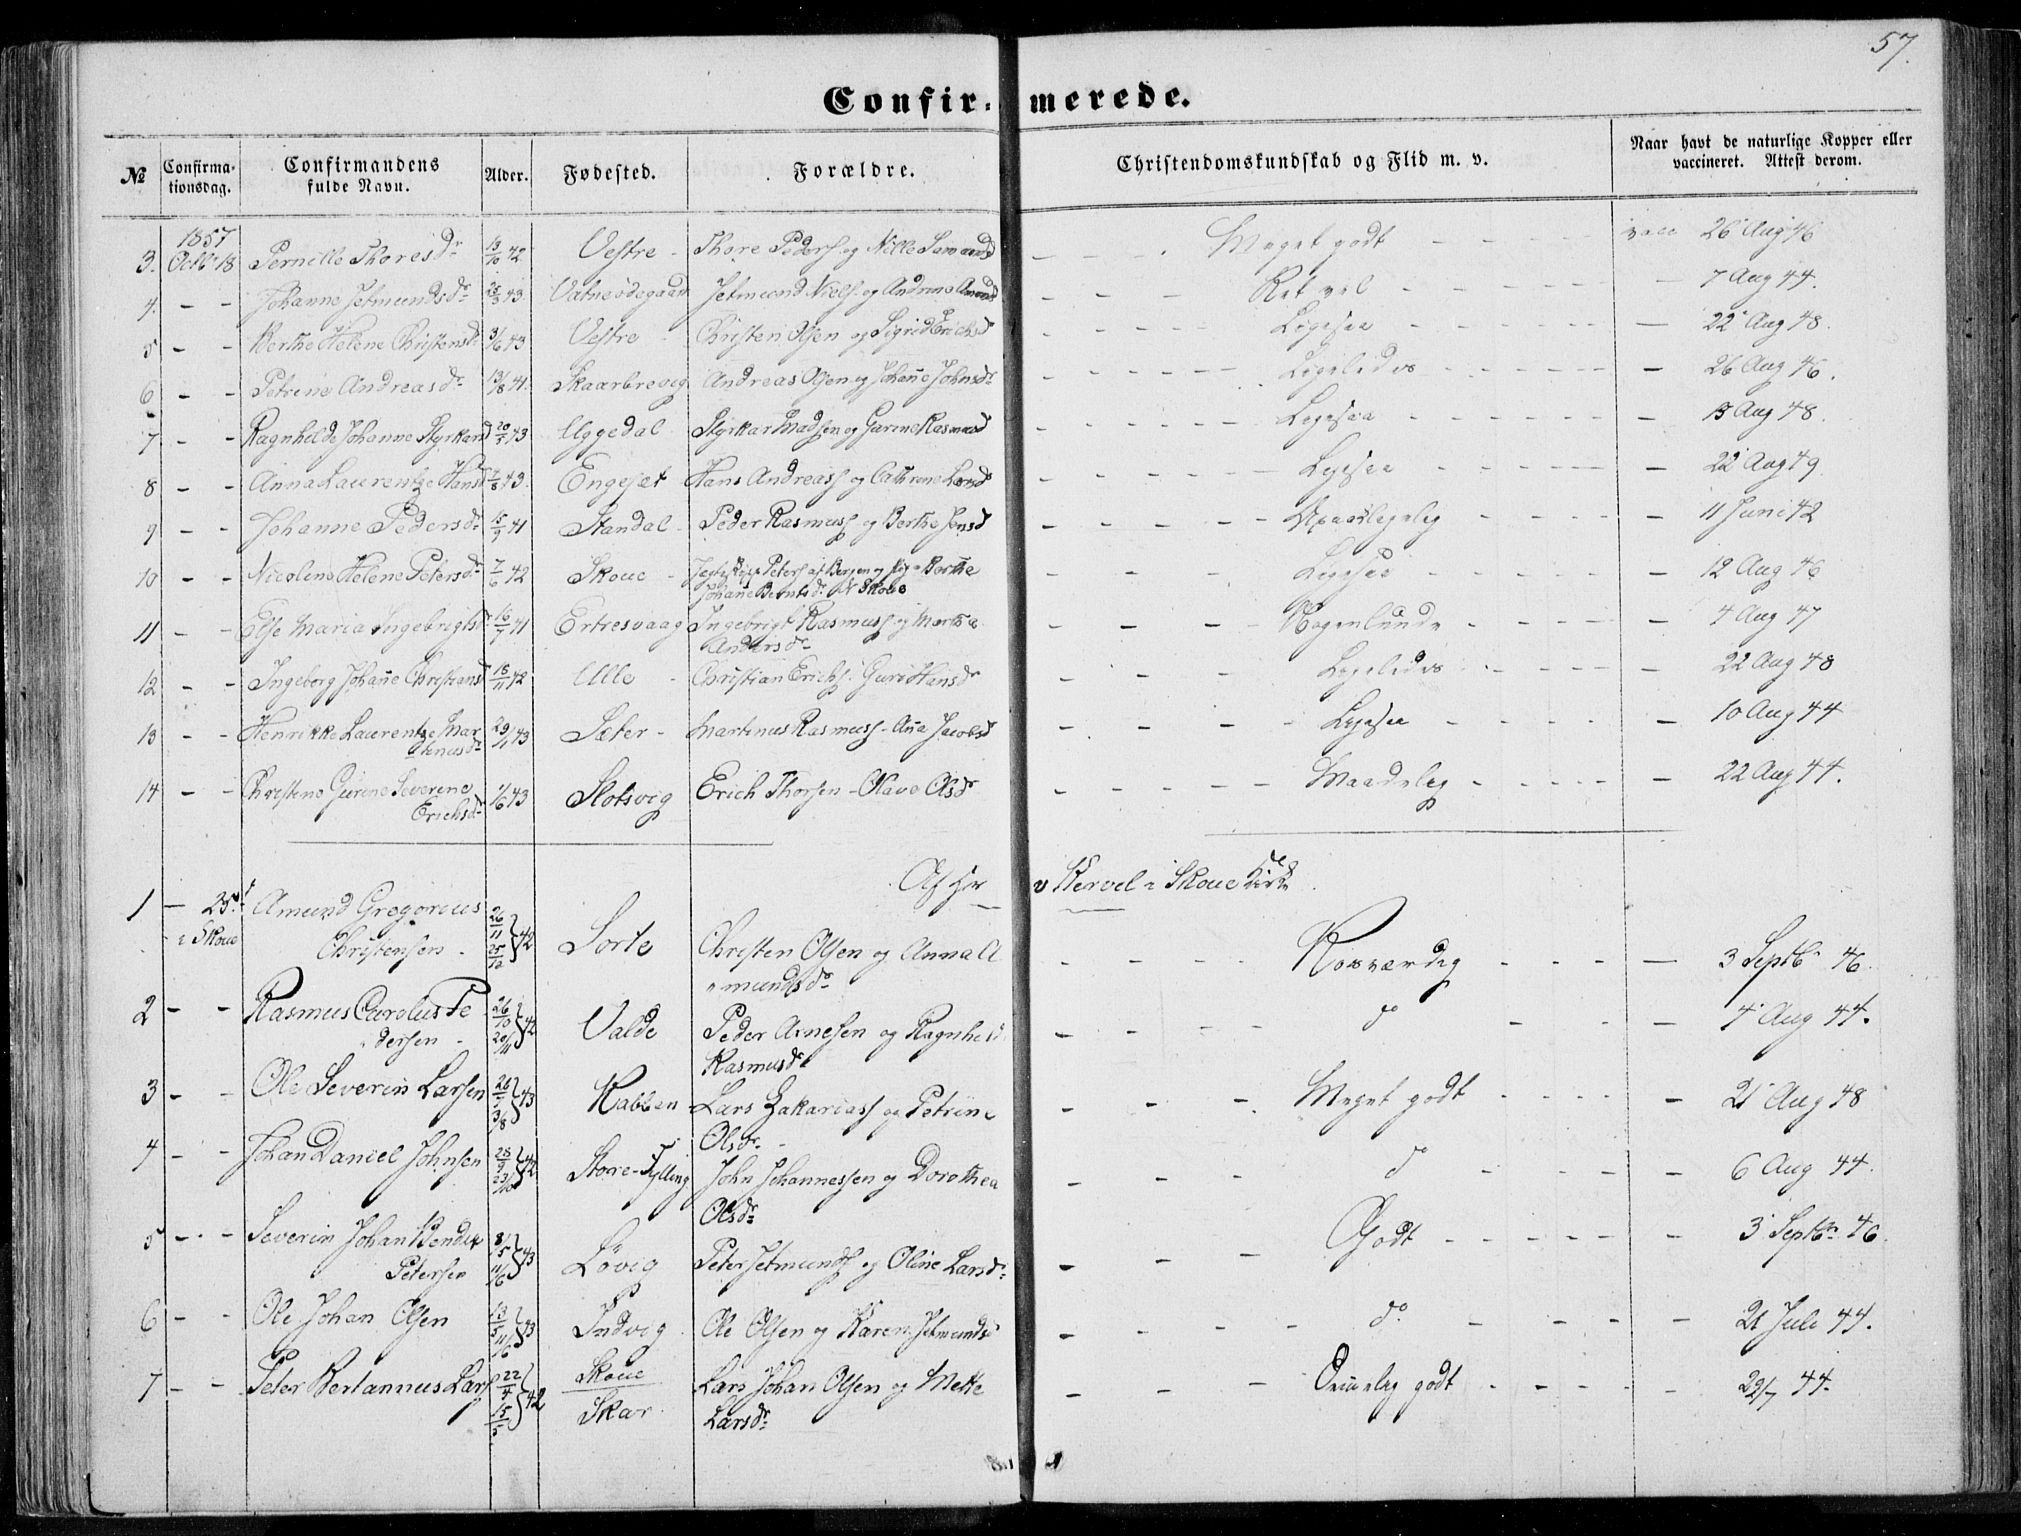 57.
Confirmerede.
№ Confirmationsdag. Confirmandens fulde Navn. Alder. Fødested. Forældre. Christendomskundskab og Flid m. v. Naar havt de naturlige Kopper eller vaccineret. Attest derom.
1857
3. Octbr 18 Pernille Thoresdr 13/10 42 Vestre - Thore Peders og Nille - - - Meget godt - - - - vacc 26 Aug 46
4. - - Johanne Jetmundsdr 43. Vatneødegaard Jetmund Niels. og Andrine - - - Ret vel - - - - 7 Aug 44.
5 - - Berthe Helene Christensdr 3/6 43 Vestre - Christen Olsen og Sigrid Erichsd - - - Ligesaa - - - - 22 Aug 48.
6 - - Petrine Andreasdr 13/8 41. Skaarbrevig Andreas Olsen og Johañe Johnsdr - - - Ligeledes - - - - 26 Aug 46.
7 - - Ragnhilde Johanne Styrkard 43 Uggedal Styrkar Madsen og Gurine Rasmusd - - - Ligesaa - - - - 13 Aug 48.
8 - - Anna Laurentze Hansd 7/8 43. Engeset Hans Andreass og Cathrine - - - Ligesaa - - - - 22 Aug 49
9 - - Johanne Pedersdr 15/9 41 Standal - Peder Rasmuss og Berthe Jensd - - - - - - 11 Juni 42
10 - - Nicoline Helene Petersdr 7/6 42 Skoue - Peters af Bergen og Pige Berthe
Johañe Berntsdr Skoue - - - Ligesaa - - - - 12 Aug 46
11 - - Else Maria Ingebrigtsdr 16/7 41 Ertresvaag Ingebrigt Rasmuss og Marthe
Andersdr - - - Nogenlunde - - - - 4 Aug 47
12 - - Ingeborg Johañe Christiansd 18/11 42 Ulle - Christian Erichs. Guri Hansdr - - - Ligeledes - - - - 22 Aug 48
13 - - Henrikke Laurentze Mar
tinusdr 29/1 43 Sæter - Martinus Rasmuss - Aña Jacobsd - - - Ligesaa - - - - 10 Aug 44
14 - - Christine Gurine Severine
Erichsdr 1/6 43 Slotsvig Erich Thorsen - Olave Olsdr - - - Maadelig - - - - 22 Aug 44.
Af Hr v Kervel i Skoue Kirke.
1 - 25. Amund Gregorius 26/11
i Skoue Christensen - 25/12 } 42 Sorte Christen Olsen og Anna A
mundsdr - - - Rosværdig - - - - 3 Septbr 46.
2 - - Rasmus Carolus Pe
dersen - 26/10 20/11 } 42 Valde Peder Arnesen og Ragnhild
Rasmusdr - - - do - - 4 Aug 44.
3 - - Ole Severin Larsen 3/8 } 43 Kabben Lars Zakariass og Petrine
Olsdr - - - Meget godt - - - - 21 Aug 48
4 - - Johan Daniel Johnsen 28/9 23/10 } 42 Store-Tylling John Johannessen og Dorothea
Olsdr - - - do - - - 6 Aug 44.
5 - - Severin Johan Bendix
Petersen 8/5 11/6 } 43 Løvig Peter Jetmunds og Oline Larsdr - - - Godt - - - - 3 Septbr 46.
6 - - Ole Johan Olsen 13/5 11/6 } 43 Indvig Ole Olsen og Karen Jetmundsd - - - do. - - - 21 Juli 44.
7 - - Peter Bertannus Lars 22/4 15/5 } 42 Skoue
Skar Lars Johan Olsen og Mette
Larsdr - - - godt - - - - 22/7 44.